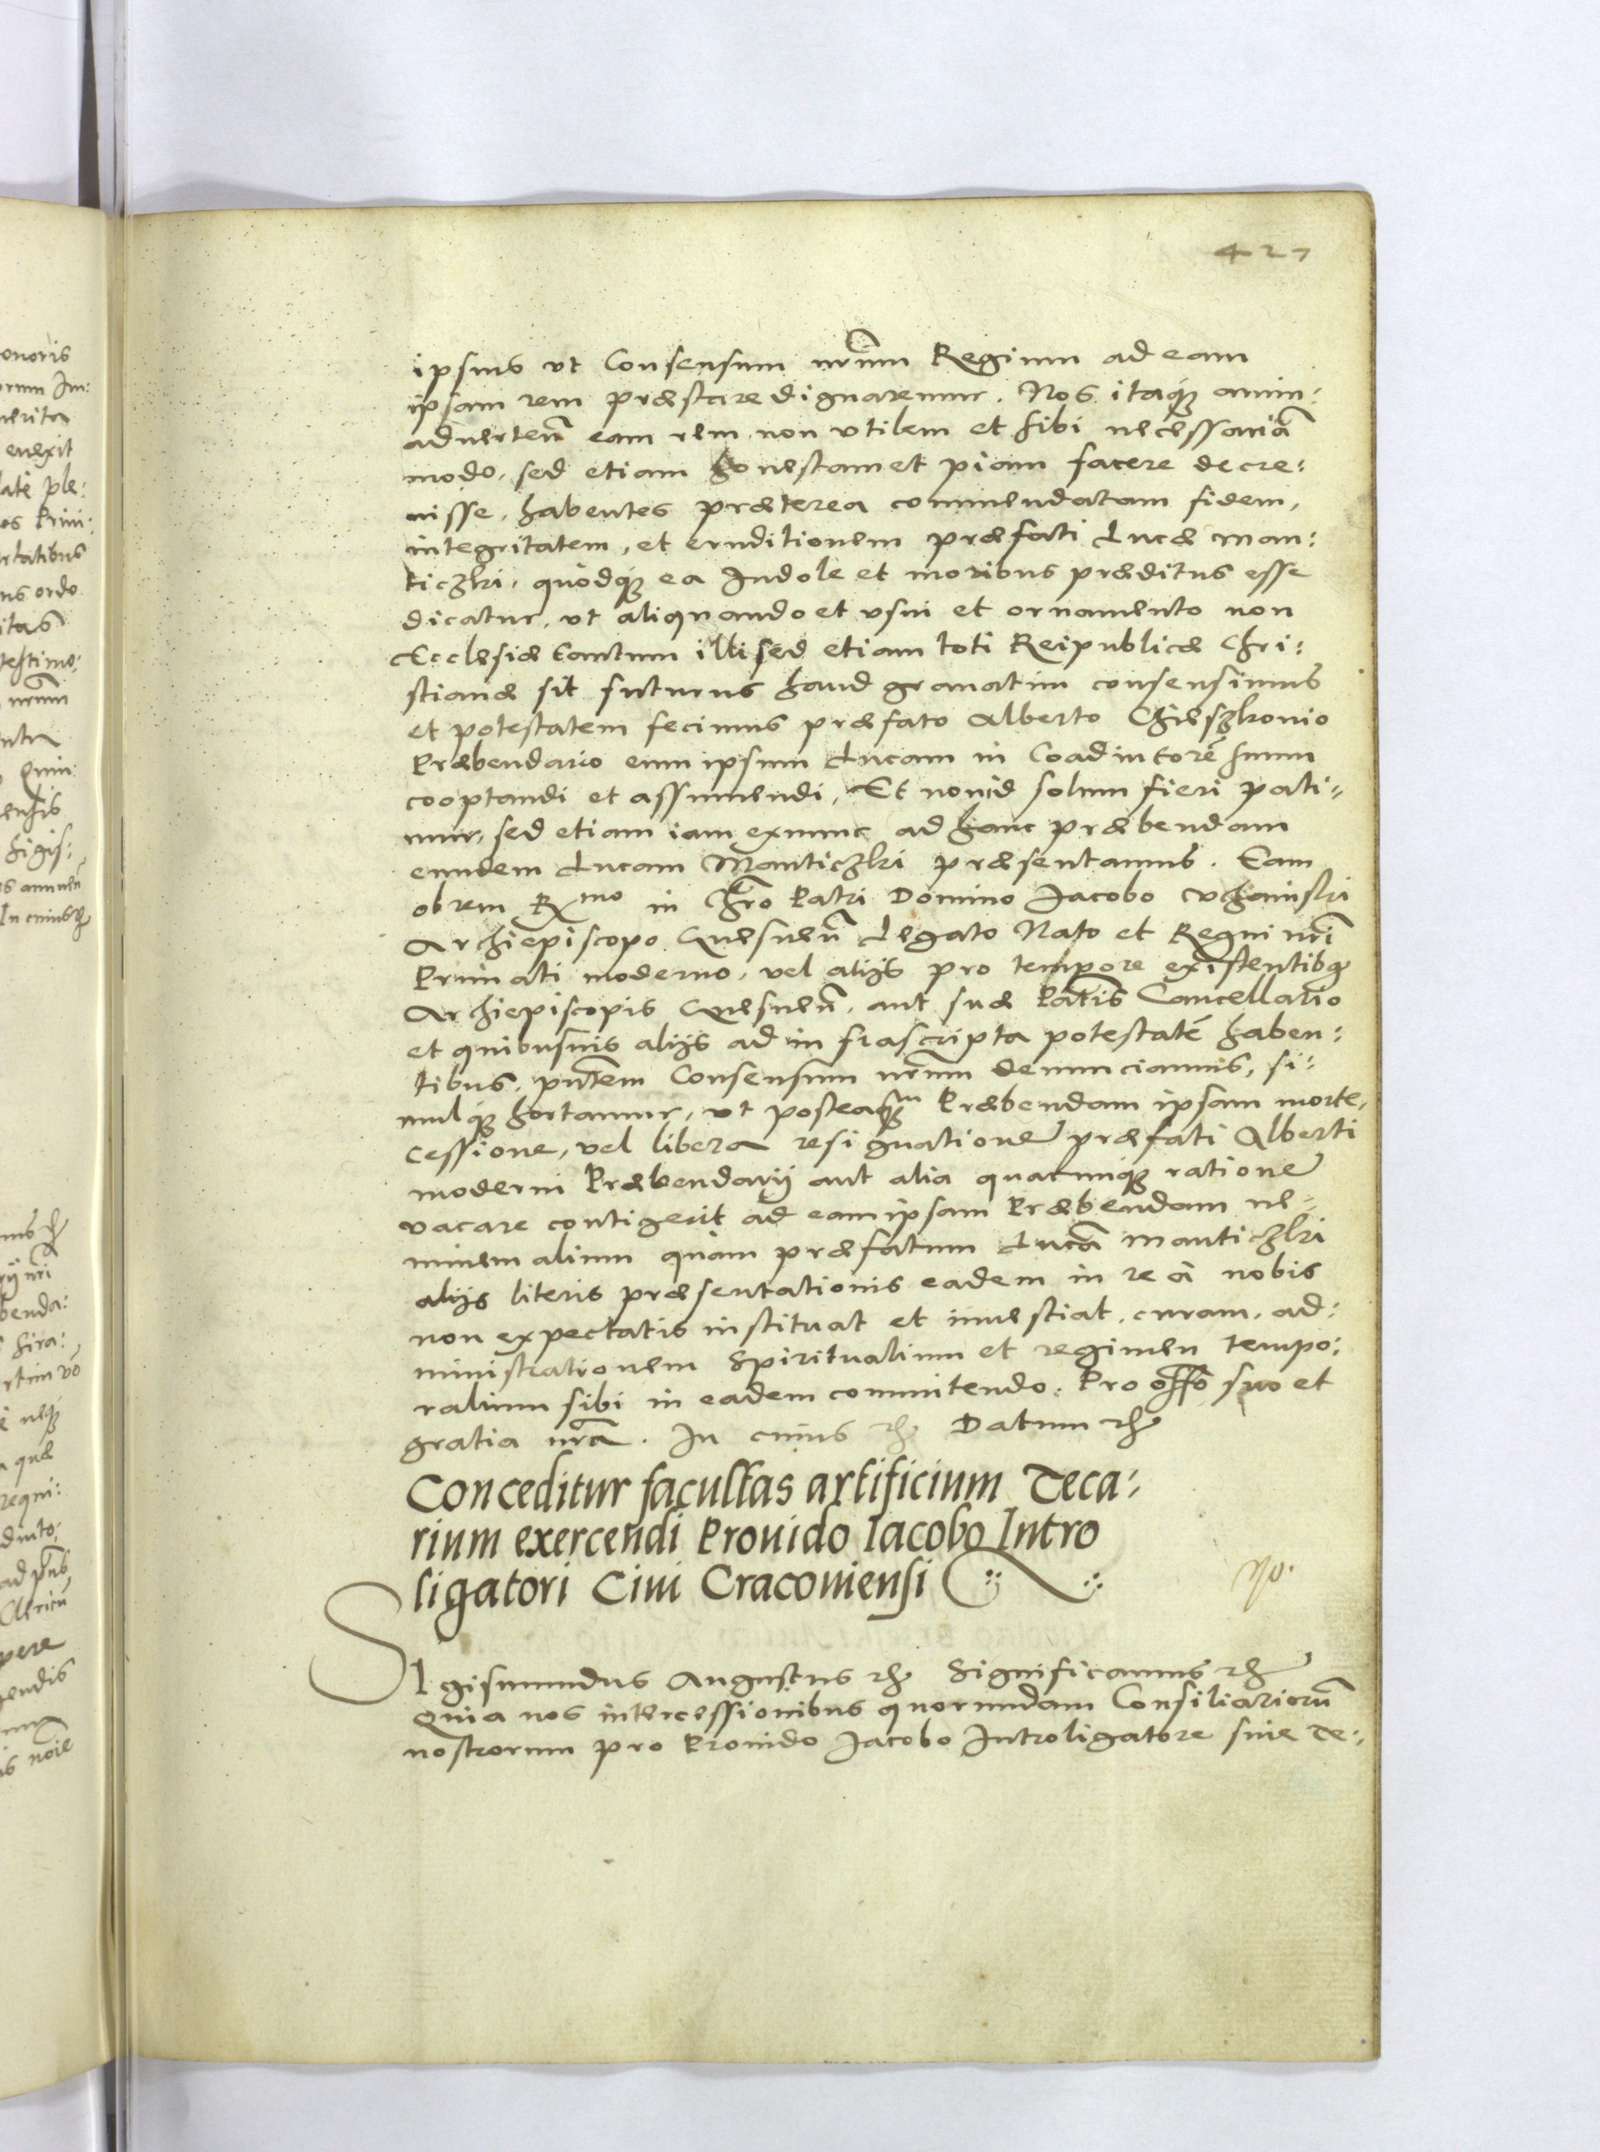 427
ipsius ut Consensum nr̃um Regium ad eam
ipsam rem præstare dignaremur. Nos itaq3 anim:
aduerteñ eam rem non utilem et sibi necessariã
modo, sed etiam honestam et piam facere decre:
uisse, habentes præterea commendatam fidem,
integritatem, et eruditionem præfati Lucæ Man:
ticzki, quodq3 ea Indole et moribus præditus esse
dicatur, ut aliquando et usui et ornamento non
Ecclesiæ tantum illi sed etiam toti Reipublicæ Chri:
stianæ sit futurus haud grauatim consensimus
et potestatem fecimus præfato Alberto Chieszkonio
Præbendario eum ipsum Lucam in Coadiutorẽ suum
cooptandi et assumendi, Et non id solum fieri pati:
mur, sed etiam iam exnunc ad hanc præbendam
eundem Lucam Manticzki præsentamus. Eam
ob rem Rmo in Chr̃o Patri Domino Jacobo Uchainski
Archiepiscopo Gnesneñ Legato Nato et Regni nr̃i
Primati moderno, uel alijs pro tempore existentibq3
Archiepiscopis Gnesneñ. aut suæ Pat̃tis Cancellario
et quibusuis alijs ad infrascripta potestatẽ haben:
tibus, pñtem Consensum nr̃um denunciamus, si:
mulq3 hortamur, ut posteaq3m Præbendam ipsam morte,
cessione, uel libera resignatione præfati Alberti
moderni Præbendarij aut alia quacunq3 ratione
uacare contigerit ad eam ipsam Præbendam ne:
minem alium quàm præfatum Lucã Manticzki
alijs literis præsentationis eadem in re à nobis
non expectatis instituat et inuestiat, curam, ad:
ministrationem Spiritualium et regimen tempo:
ralium sibi in eadem committendo: Pro offo suo et
gratia nr̃a. In cuius rei Datum rc
Conceditur facultas artificium Teca:
rium exercendi Prouido Iacobo Intro
ligatori Ciui Cracouiensi
Sigismundus Augustus rc Significamus rc
Quia nos intercessionibus quorundam Consiliariorũ
nostrorum pro Prouido Jacobo Introligatore siue Te: